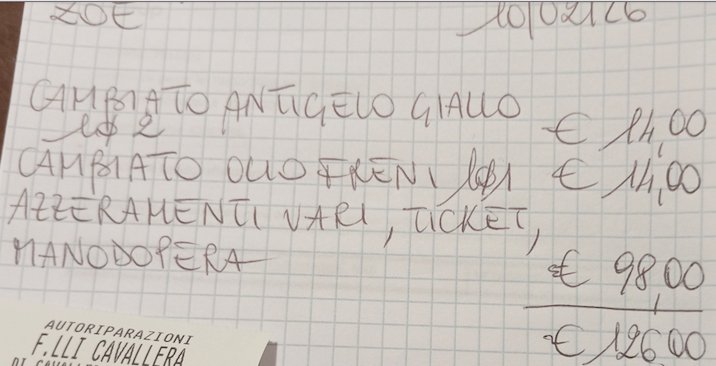 ZOE 10/02/26
CAMBIATO ANTIGELO GIALLO
2 € 14,00
CAMBIATO OLIO FRENI € 14,00
AZZERAMENTI VARI, TICKET,
MANODOPERA
€ 98,00
€ 126,00
AUTORIPARAZIONI
F.LLI CAVALLERA